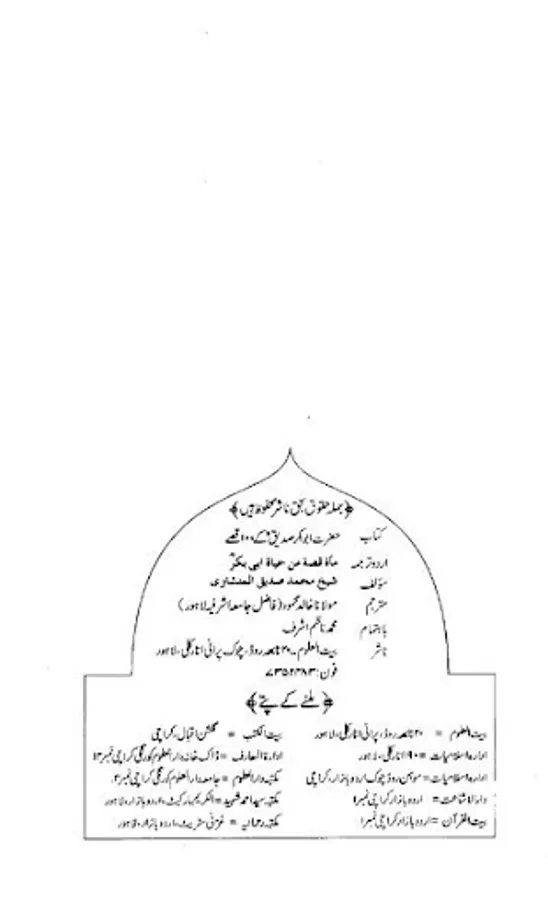 ﴿جملہ حقوق بحق ناشر محفوظ ہیں﴾
کتاب حضرت ابوبکر صدیقؓ کے ۱۰۰ قصے
اردو ترجمہ مأة قصة من حياة ابی بکرؓ
مؤلف شیخ محمد صدیق المنشاوی
مترجم مولانا خالد محمود (فاضل جامعہ اشرفیہ لاہور)
باہتمام محمد ناظم اشرف
ناشر بیت العلوم۔ ۲۰ نابھہ روڈ، چوک پرانی انارکلی، لاہور
فون: ۷۳۵۲۴۸۳
﴿ملنے کے پتے﴾
بیت العلوم = ۲۰ نابھہ روڈ، پرانی انارکلی، لاہور
بیت الکتب = گلشن اقبال، کراچی
ادارہ اسلامیات = ۱۹۰ انارکلی، لاہور
ادارۃ المعارف = ڈاک خانہ دارالعلوم کورنگی کراچی نمبر ۱۴
ادارہ اسلامیات = موہن روڈ چوک اردو بازار، کراچی
مکتبہ دارالعلوم = جامعہ دارالعلوم کورنگی کراچی نمبر ۱۴
دارالاشاعت = اردو بازار کراچی نمبر ۱
مکتبہ سید احمد شہید = الکریم مارکیٹ، اردو بازار، لاہور
بیت القرآن = اردو بازار کراچی نمبر ۱
مکتبہ رحمانیہ = غزنی سٹریٹ، اردو بازار، لاہور